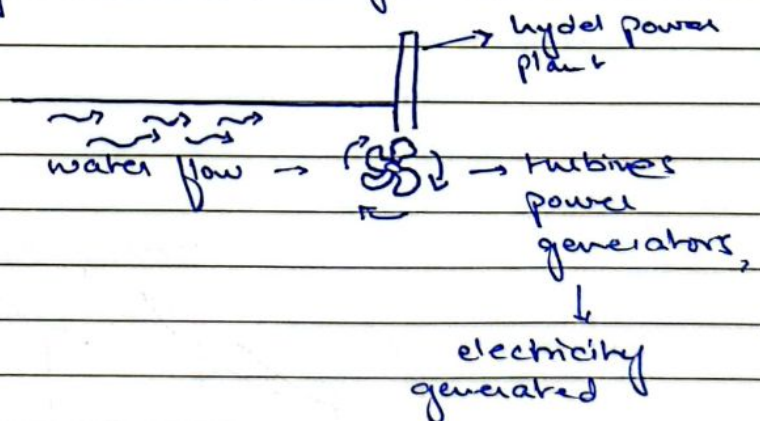 hydel power
plant
water flow → → turbines
power
generators,
↓
electricity
generated